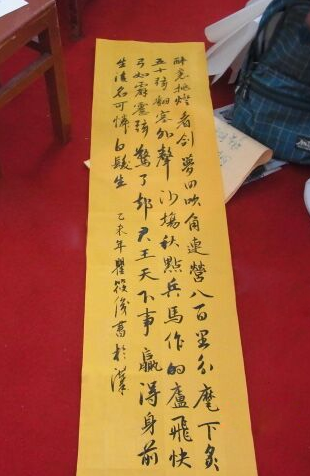 醉意挑灯看剑夢回吹角連營八百里分麾下炙
五十弦翻塞外聲沙場秋點兵馬作的盧飛快
弓如霹靂弦驚了却君王天下事贏得身前
生後名可憐白髮生 乙未年瞿筱書於漢